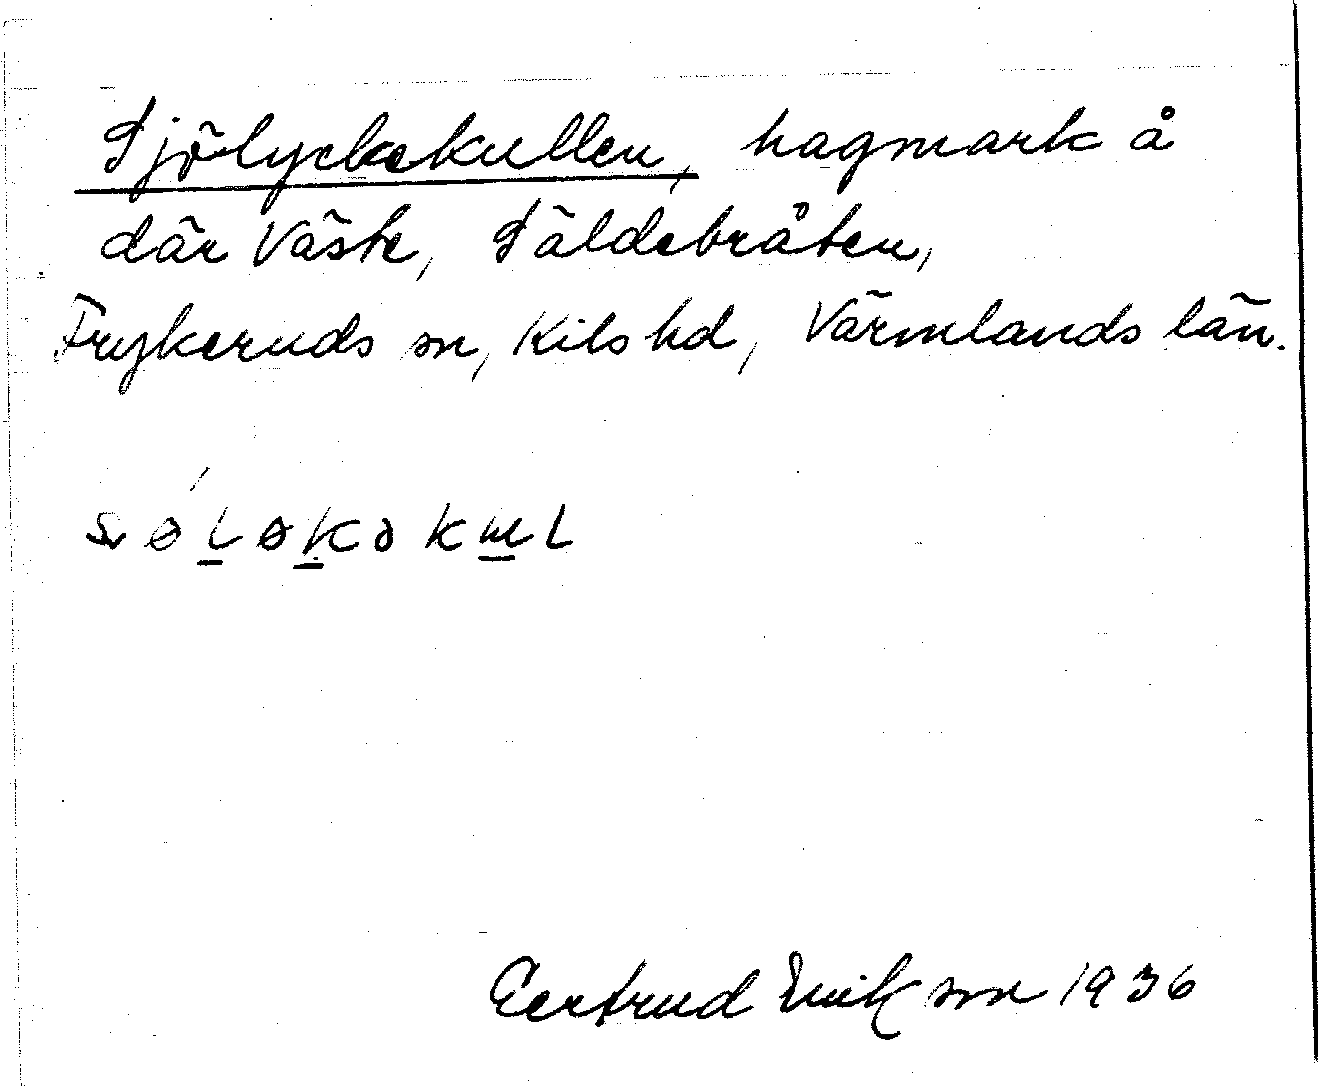 Sjölyckekullen, hagmark å
där Väste, Säldebråten,
Frykeruds sn, Kils hd, Värmlands län.
Gertrud Erikson 1936